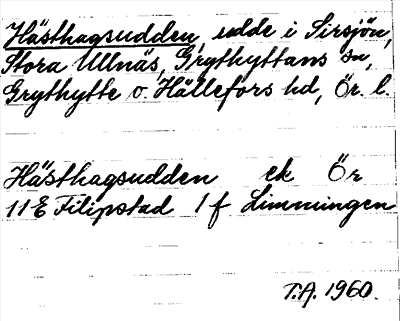 Hästhagsudden, udde i Sirsjön,
Stora Ullnäs, Grythyttans sn,
Grythytte o. Hällefors hd, Ör. l.
Hästhagsudden ek Ör
11E Filipstad 1 f Limmingen
T.A. 1960.